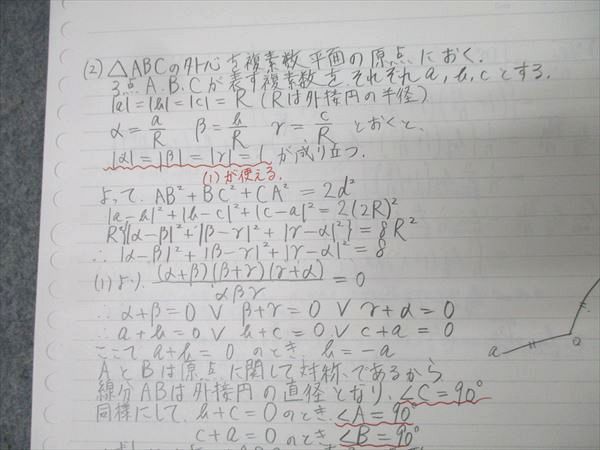 (2) △ABCの外心を複素数平面の原点におく.
3点A.B.Cが表す複素数を それぞれ a, b, c とする.
|a|=|b|=|c|=R (Rは外接円の半径)
α=a/R β=b/R γ=c/R とおくと、
|α|=|β|=|γ|=1 が成り立つ.
(1)が使える.
よって. AB²+BC²+CA²=2d²
|a-b|²+|b-c|²+|c-a|²=2(2R)²
R²{|α-β|²+|β-γ|²+|γ-α|²}=8R²
∴ |α-β|²+|β-γ|²+|γ-α|²=8
(1)より. (α+β)(β+γ)(γ+α)/αβγ=0
∴ α+β=0 ∨ β+γ=0 ∨ γ+α=0
∴ a+b=0 ∨ b+c=0 ∨ c+a=0
ここで a+b=0 のとき. b=-a
AとBは原点に関して対称であるから
線分ABは外接円の直径となり. ∠C=90°
同様にして. b+c=0のとき. ∠A=90°
c+a=0のとき. ∠B=90°
a
O